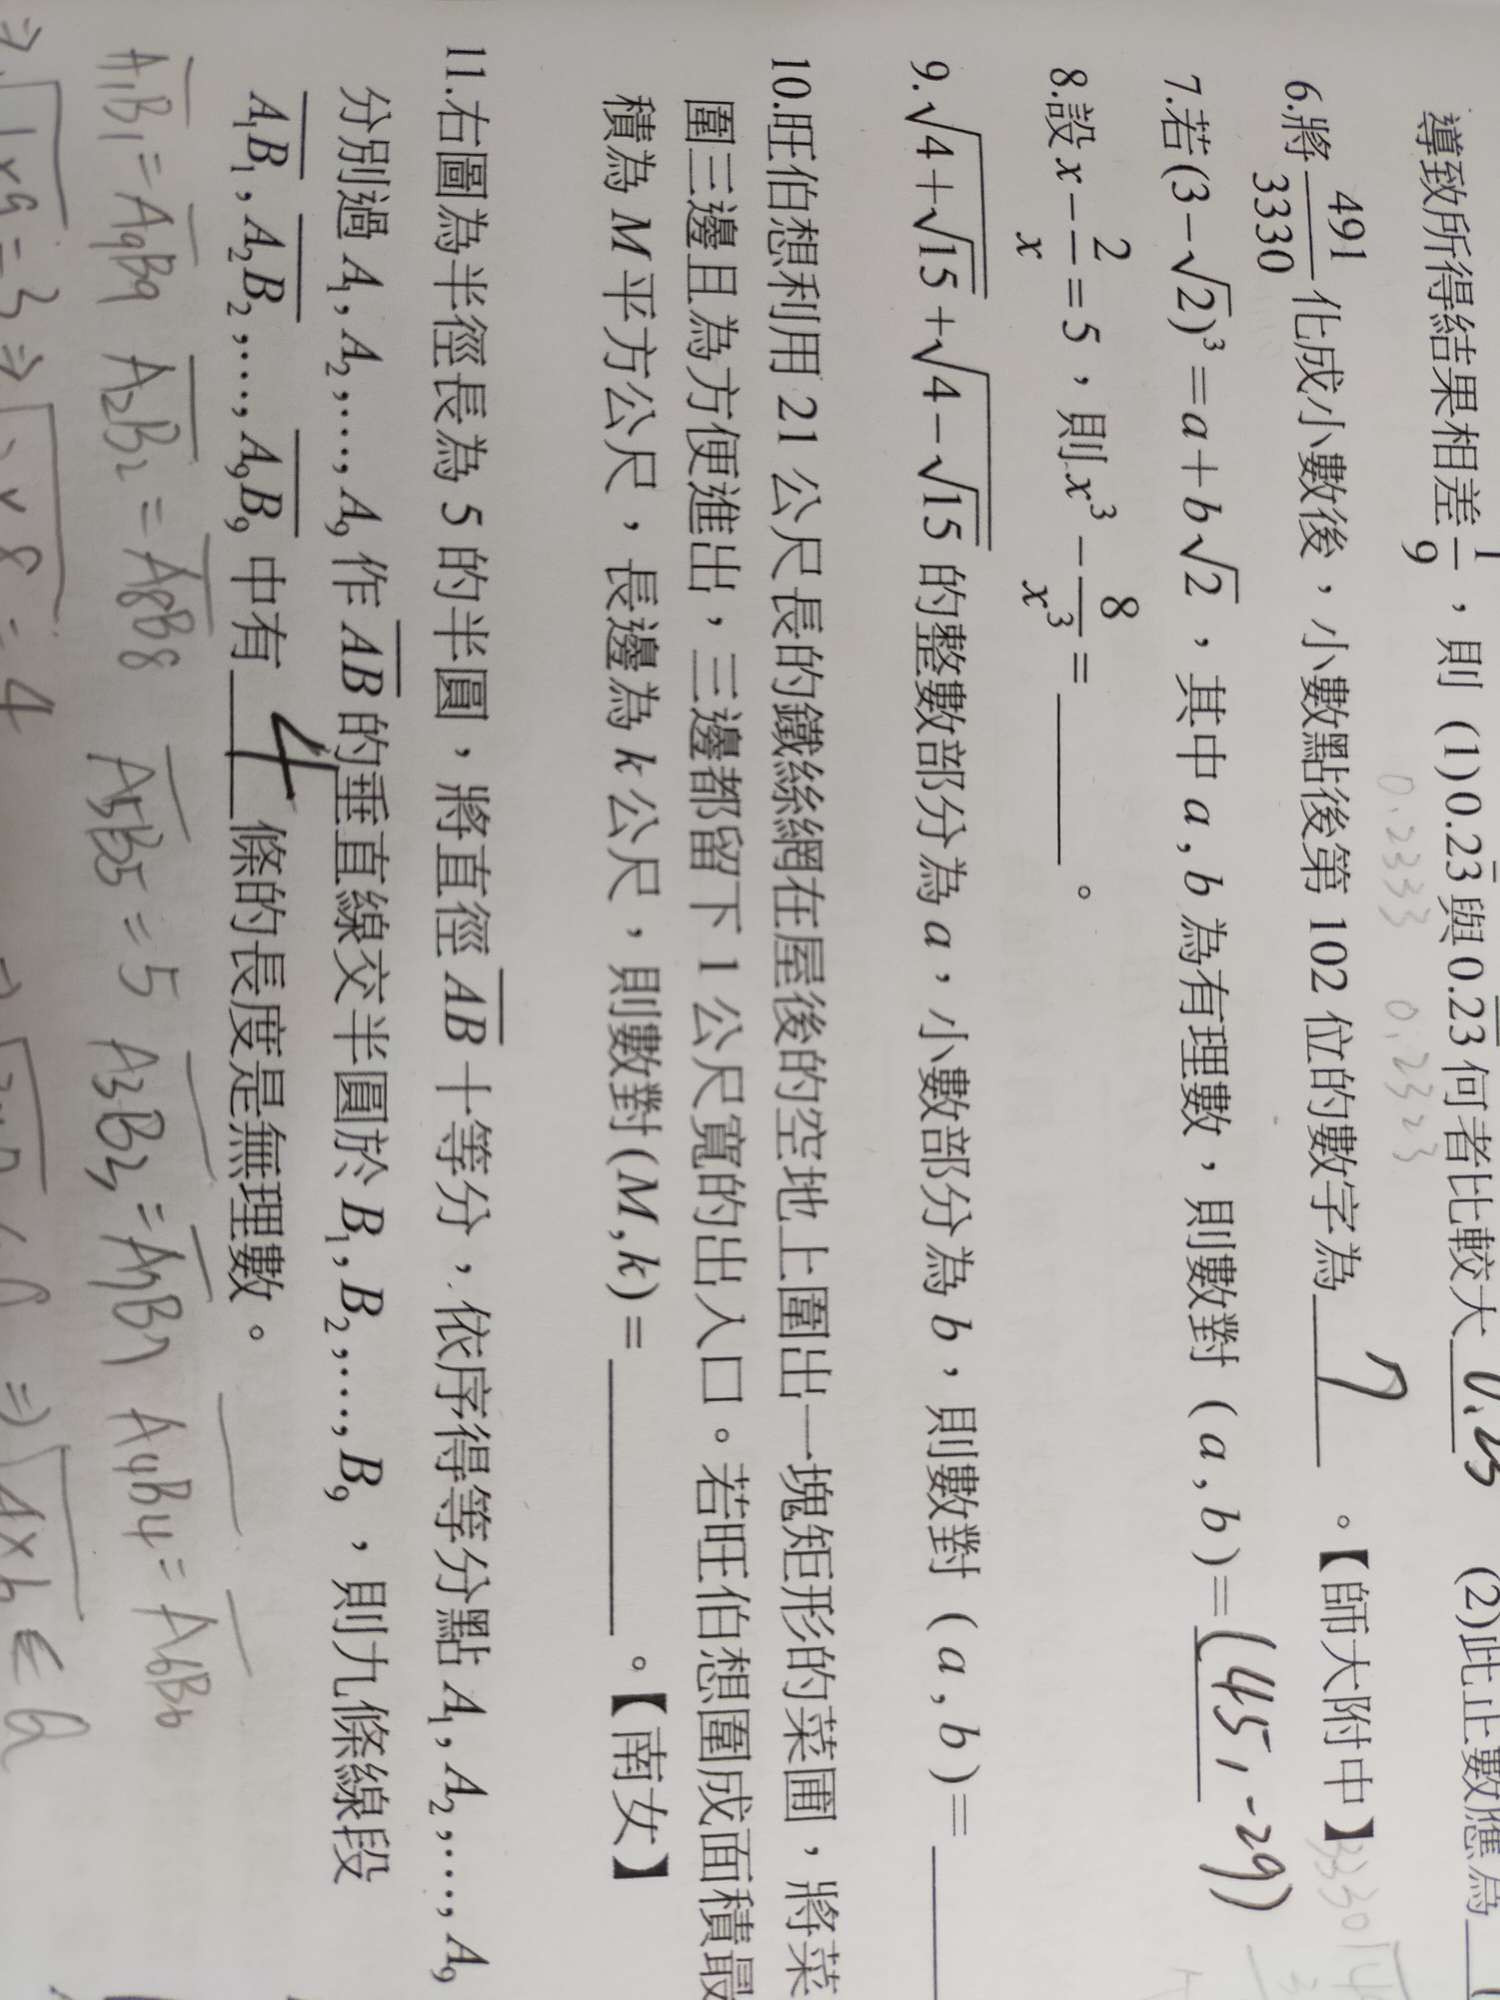 導致所得結果相差 1/9，則 (1)0.23̅ 與 0.2̅3̅ 何者比較大 0.23 (2)此正數應為
0.2333 0.2323
6.將 491/3330 化成小數後，小數點後第 102 位的數字為 7 。【師大附中】
7.若(3−√2)³ = a + b√2，其中 a , b 為有理數，則數對 (a , b) = (45, -29)
8.設 x − 2/x = 5，則 x³ − 8/x³ = ______。
9.√(4+√15) + √(4−√15) 的整數部分為 a，小數部分為 b，則數對 (a , b) =
10.旺伯想利用 21 公尺長的鐵絲網在屋後的空地上圍出一塊矩形的菜圃，將菜
圍三邊且為方便進出，三邊都留下 1 公尺寬的出入口。若旺伯想圍成面積最
積為 M 平方公尺，長邊為 k 公尺，則數對(M , k) = ______。【南女】
11.右圖為半徑長為 5 的半圓，將直徑 A̅B̅ 十等分，依序得等分點 A₁, A₂,…, A₉
分別過 A₁, A₂,…, A₉ 作 A̅B̅ 的垂直線交半圓於 B₁, B₂,…, B₉，則九條線段
A̅₁B̅₁, A̅₂B̅₂,…, A̅₉B̅₉ 中有 4 條的長度是無理數。
A̅₁B̅₁ = A̅₉B̅₉ A̅₂B̅₂ = A̅₈B̅₈ A̅₅B̅₅ = 5 A̅₃B̅₃ = A̅₇B̅₇ A̅₄B̅₄ = A̅₆B̅₆
⇒ √(1×9) = 3 ⇒ = 4